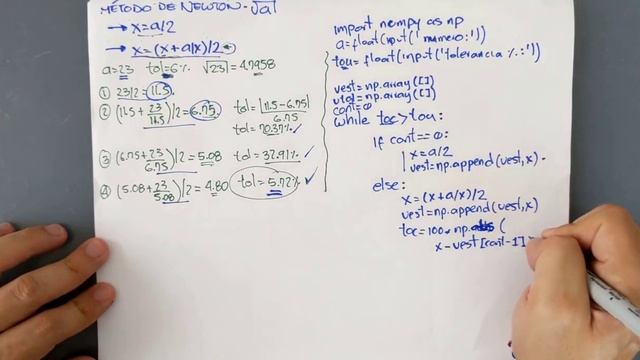 MÉTODO DE NEWTON - √a
→ x=a/2
→ x=(x+a/x)/2
a=23 tol=6% √23=4.7958
① 23/2=11.5
② (11.5+23/11.5)/2=6.75 tol=|11.5-6.75|/6.75
tol=70.37% ✓
③ (6.75+23/6.75)/2=5.08 tol=32.91% ✓
④ (5.08+23/5.08)/2=4.80 tol=5.72% ✓
import numpy as np
a=float(input('numero:'))
tou=float(input('tolerancia %:'))
vest=np.array([])
vtol=np.array([])
cont=0
while toc>tou:
if cont==0:
x=a/2
vest=np.append(vest,x)
else:
x=(x+a/x)/2
vest=np.append(vest,x)
toc=100*np.abs(
x-vest[cont-1]